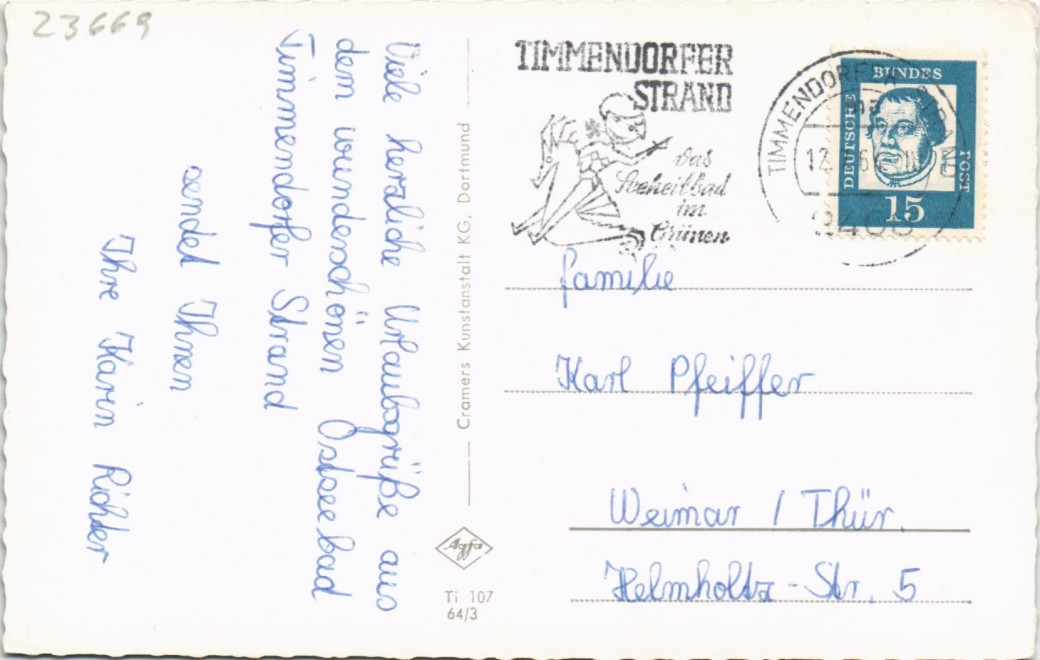 23669
Viele herzliche Urlaubsgrüße aus
dem wunderschönen Ostseebad
Timmendorfer Strand
sendet Ihnen
Ihre Karin Richter
Cramers Kunstanstalt KG, Dortmund
Agfa
Ti 107
64/3
TIMMENDORFER
STRAND
das
Seeheilbad
im
Grünen
TIMMENDORFER STRAND
12
DEUTSCHE BUNDESPOST
15
Familie
Karl Pfeiffer
Weimar / Thür.
Helmholtz-Str. 5